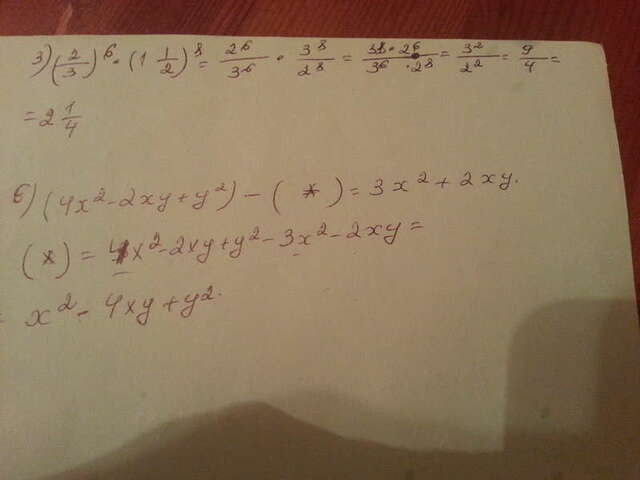 3) (2/3)^6 · (1 1/2)^8 = 2^6/3^6 · 3^8/2^8 = 3^8 · 2^6/3^6 · 2^8 = 3^2/2^2 = 9/4 =
= 2 1/4
6) (4x^2 - 2xy + y^2) - ( * ) = 3x^2 + 2xy.
( * ) = 4x^2 - 2xy + y^2 - 3x^2 - 2xy =
= x^2 - 4xy + y^2.